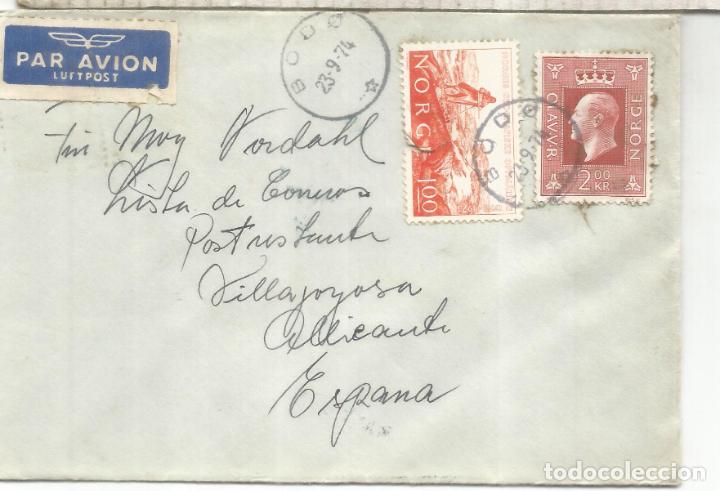 PAR AVION
LUFTPOST
BODØ
23-9-74
NORGE
1.00
BODØ
23-9-74
OLAV V AR
NORGE
2.00
KR
Moy Nordahl
Lista de Correos
Postrestante
Villajoyosa
Allicante
Espana
todocoleccion
todocoleccion.net